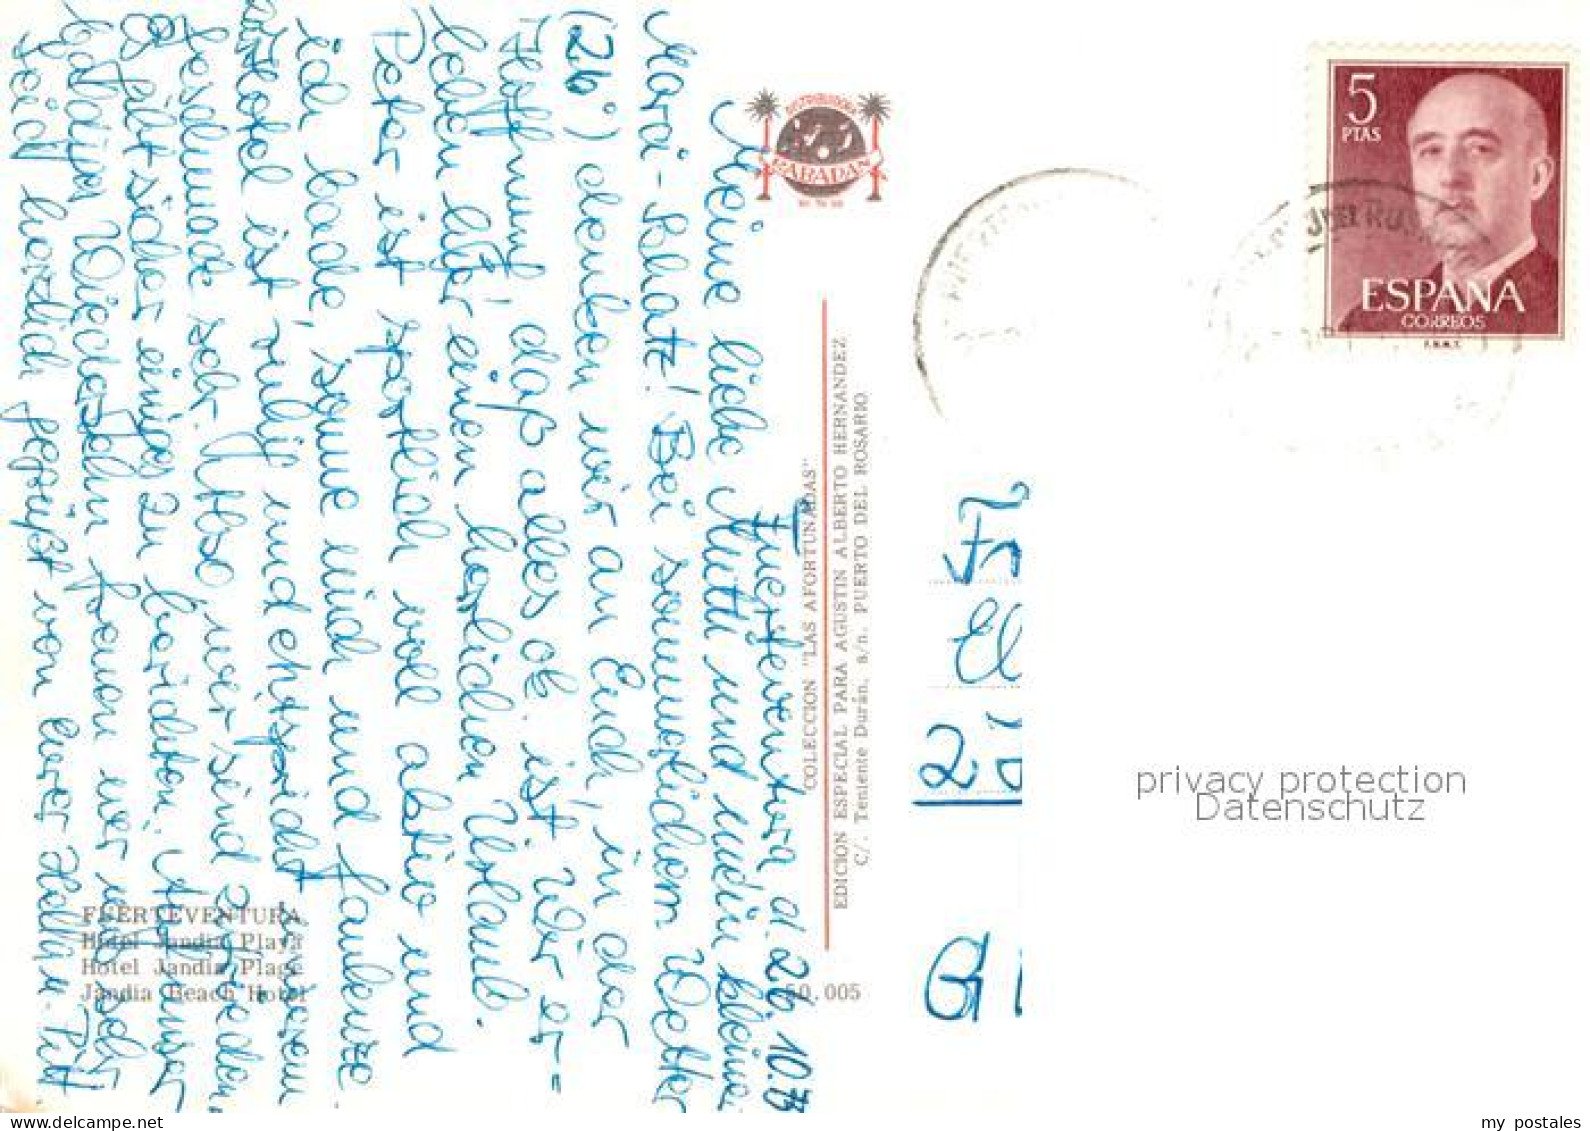 Fuerteventura, d. 26.10.73
Meine liebe Mutti und mein kleiner
Mara-Schatz! Bei sommerlichem Wetter
(26°) denken wir an Euch, in der
Hoffnung, daß alles ok. ist. Wir er-
leben hier einen herrlichen Urlaub.
Peter ist sportlich voll aktiv und
ich bade, sonne mich und faulenze.
Hotel ist ruhig und entspricht unserem
Geschmack sehr. Also wir sind zufrieden.
Es gibt sicher einiges zu berichten. Auf unser
Wiedersehn freuen wir uns sehr
Seid herzlich gegrüßt von Eurer Helga u. Peter
BARADAN
COLECCION "LAS AFORTUNADAS"
EDICION ESPECIAL PARA AGUSTIN ALBERTO HERNANDEZ
C/. Teniente Durán, s/n. PUERTO DEL ROSARIO
FUERTEVENTURA
Hotel Jandia Playa
Hotel Jandia Plage
Jandia Beach Hotel
50.005
5
PTAS
ESPAÑA
CORREOS
F.N.M.T.
Fr
El
2
G
privacy protection
Datenschutz
my postales